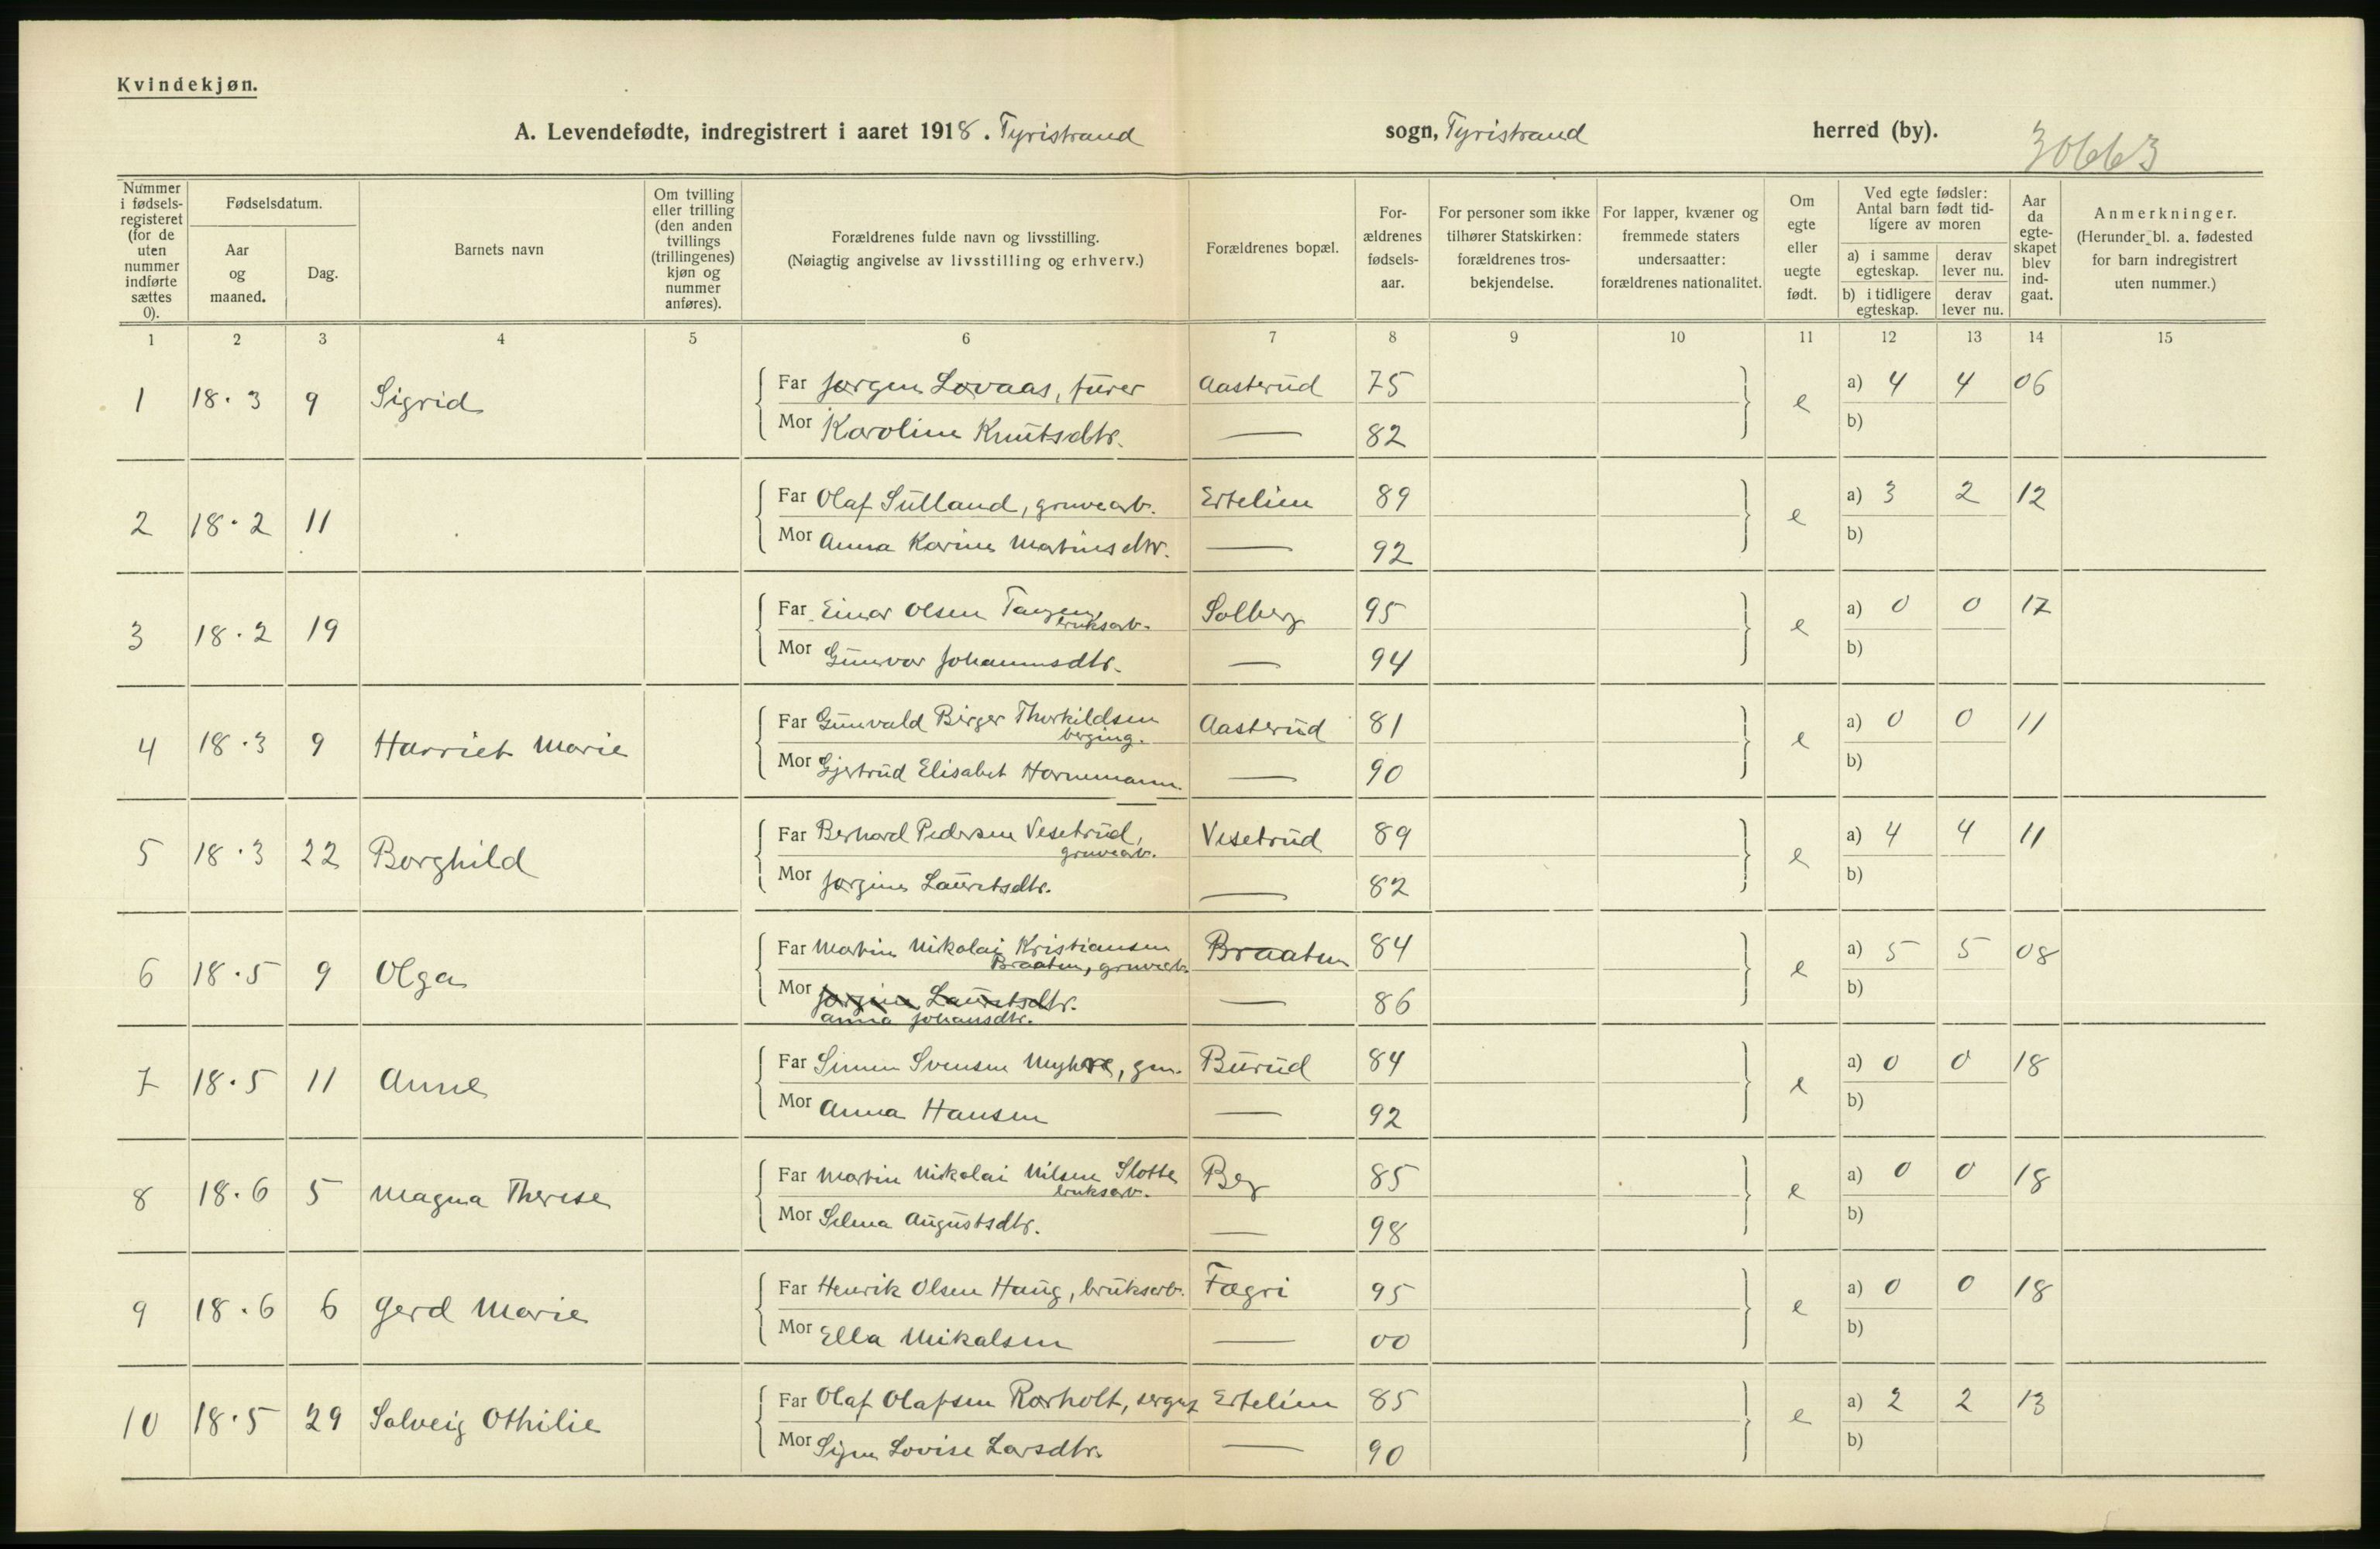 Kvindekjøn.
A. Levendefødte, indregistrert i aaret 1918. Tyristrand sogn, Tyristrand herred (by).
30663
Nummer i fødsels-registeret (for de uten nummer indførte sættes 0).
Fødselsdatum.
Aar og maaned.
Dag.
Barnets navn
Om tvilling eller trilling (den anden tvillings (trillingenes) kjøn og nummer anføres).
Forældrenes fulde navn og livsstilling.
(Nøiagtig angivelse av livsstilling og erhverv.)
Forældrenes bopæl.
For-ældrenes fødsels-aar.
For personer som ikke tilhører Statskirken: forældrenes tros-bekjendelse.
For lapper, kvæner og fremmede staters undersaatter: forældrenes nationalitet.
Om egte eller uegte født.
Ved egte fødsler: Antal barn født tid-ligere av moren
a) i samme egteskap.
derav lever nu.
b) i tidligere egteskap.
derav lever nu.
Aar da egte-skapet blev ind-gaat.
Anmerkninger.
(Herunder bl. a. fødested for barn indregistrert uten nummer.)
1 2 3 4 5 6 7 8 9 10 11 12 13 14 15
1 18.3 9 Sigrid Far Jørgen Lovaas, furer Aasterud 75 e a) 4 4 06
Mor Karoline Knutsdtr. — 82 b)
2 18.2 11 Far Olaf Sutland, gruvearb. Ertelien 89 e a) 3 2 12
Mor Anna Karine Martinsdtr. — 92 b)
3 18.2 19 Far Einar Olsen Tangen, Solberg 95 e a) 0 0 17
bruksarb.
Mor Gunvor Johannesdtr. — 94 b)
4 18.3 9 Harriet Marie Far Gunvald Birger Thorkildsen Aasterud 81 e a) 0 0 11
berging.
Mor Gjertrud Elisabet Hornemann — 90 b)
5 18.3 22 Borghild Far Berhard Pedersen Vesetrud, Vesetrud 89 e a) 4 4 11
gruvearb.
Mor Jørgine Lauritsdtr. — 82 b)
6 18.5 9 Olga Far Martin Nikolai Kristiansen Braaten 84 e a) 5 5 08
Braaten, gruvearb.
Mor Jørgine Lauritsdtr. — 86 b)
Anna Johansdtr.
7 18.5 11 Anne Far Simen Svensen Myhre, gm. Burud 84 e a) 0 0 18
Mor Anna Hansen — 92 b)
8 18.6 5 Magna Therese Far Martin Nikolai Nilsen Slotte Berg 85 e a) 0 0 18
bruksarb.
Mor Selma Augustsdtr. — 98 b)
9 18.6 6 Gerd Marie Far Henrik Olsen Haug, bruksarb. Fagri 95 e a) 0 0 18
Mor Ella Mikalsen — 00 b)
10 18.5 29 Solveig Othilie Far Olaf Olafsen Rørholt, Ertelien 85 e a) 2 2 13
Mor Signe Lovise Larsdtr. — 90 b)